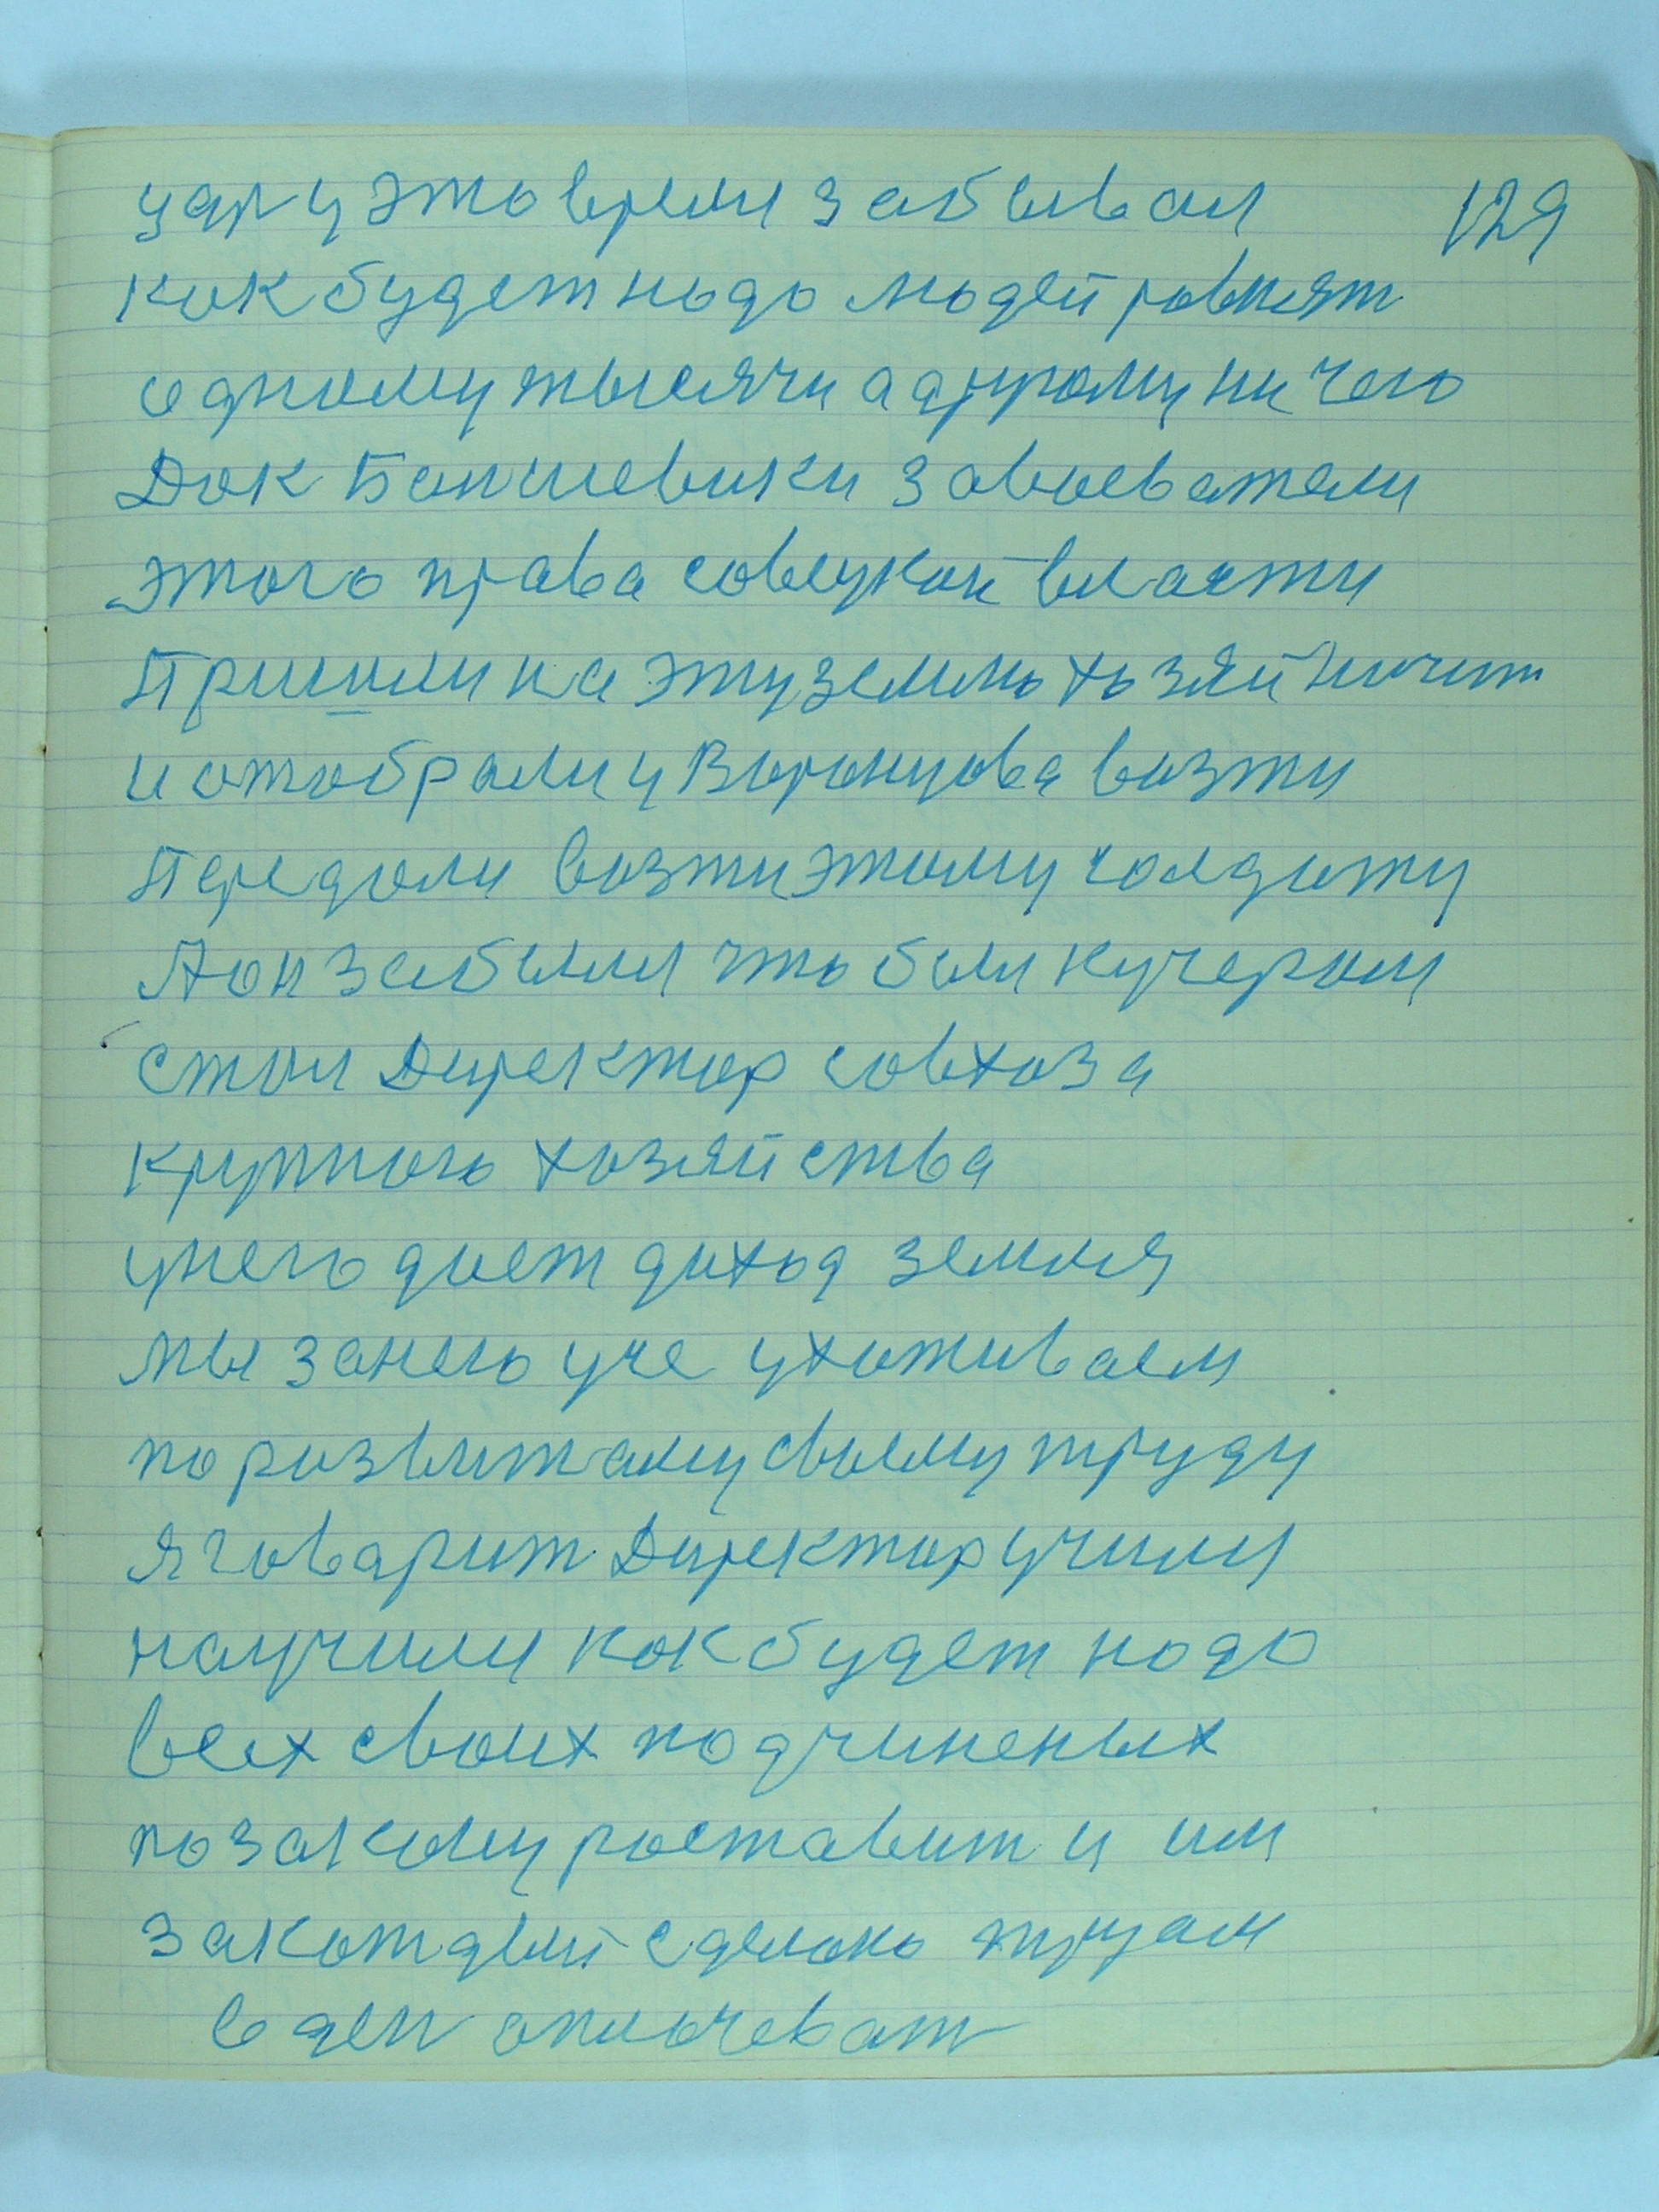 129
удру это время забывал
как будет надо людей ровнят
одному тысячи а другому ни чего
Дак Банчшевики завоеватели
этого права совецкай власти
Пришли на эту землю хозяйничит
и отобрали у Воронцова возти
Передали возти этому солдату
Аон забыл что был кучером
стал Директор совхоза
крупного хозяйства
унего дает доход земля
мы занего уче ухаживаем
по развитаму своему труду
я говарит Директор учили
научили как будет надо
всех своих подчиненых
по закону роставит и им
закаждый сделано трудам
в ден оплочеват